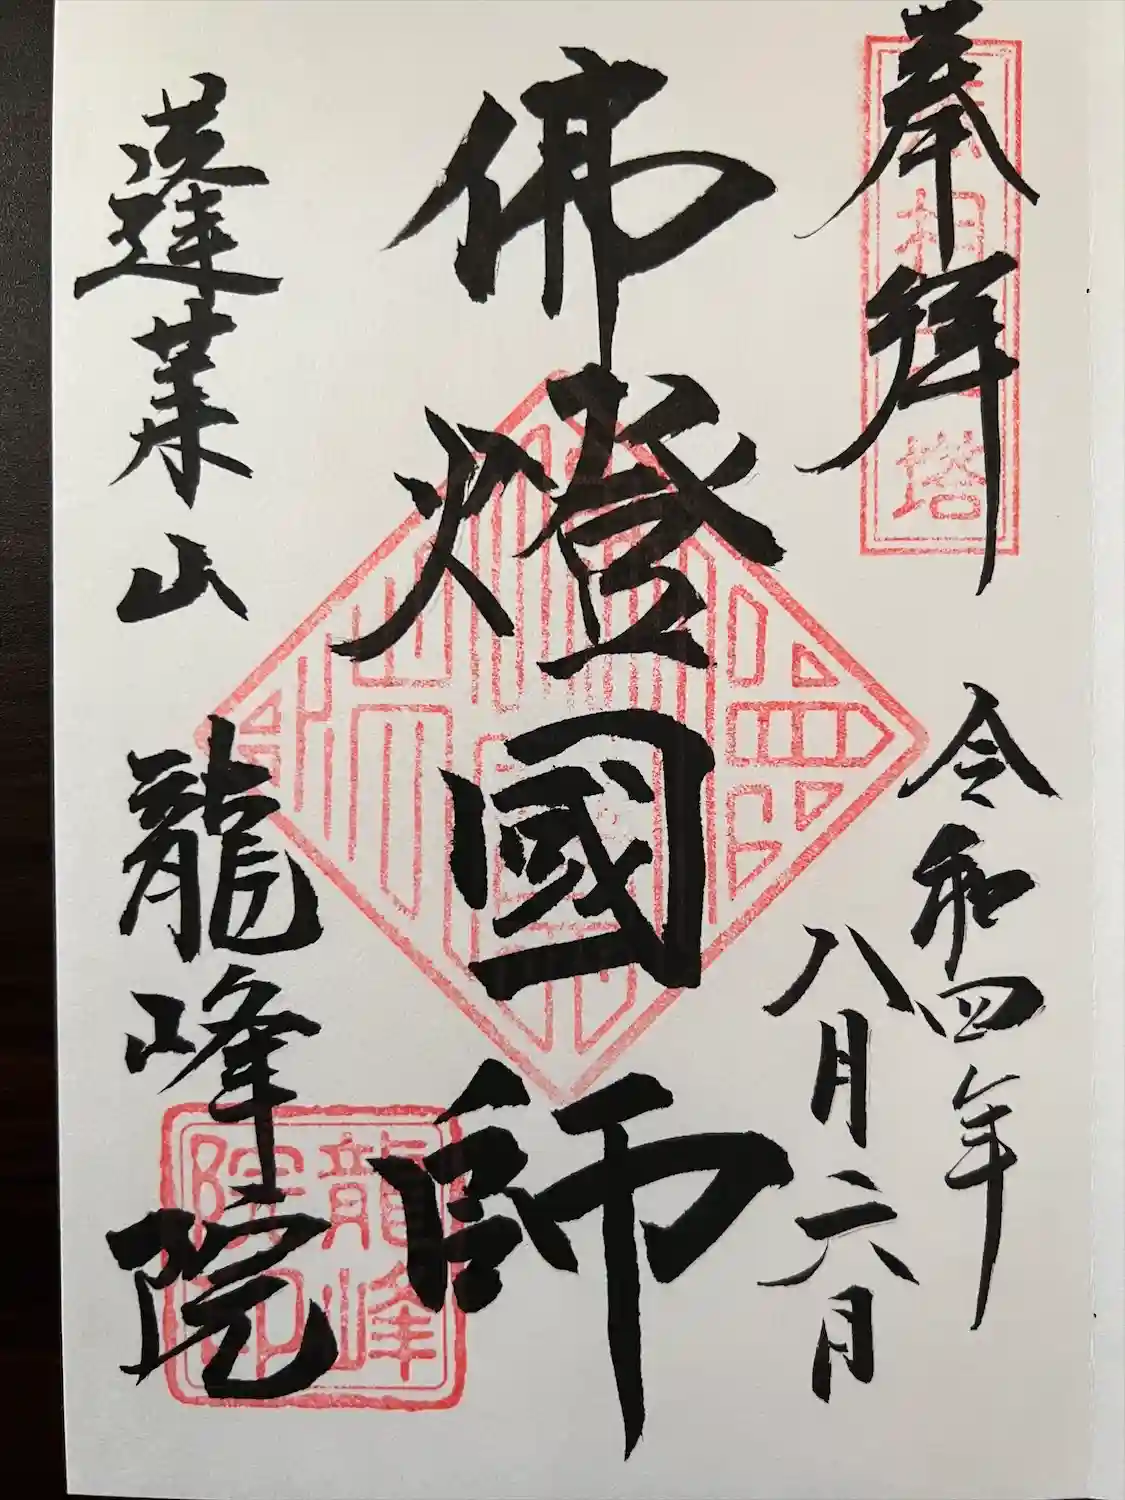 奉拝
令和四年
八月六月
佛燈國師
蓬莱山 龍峰院
龍峰
院印